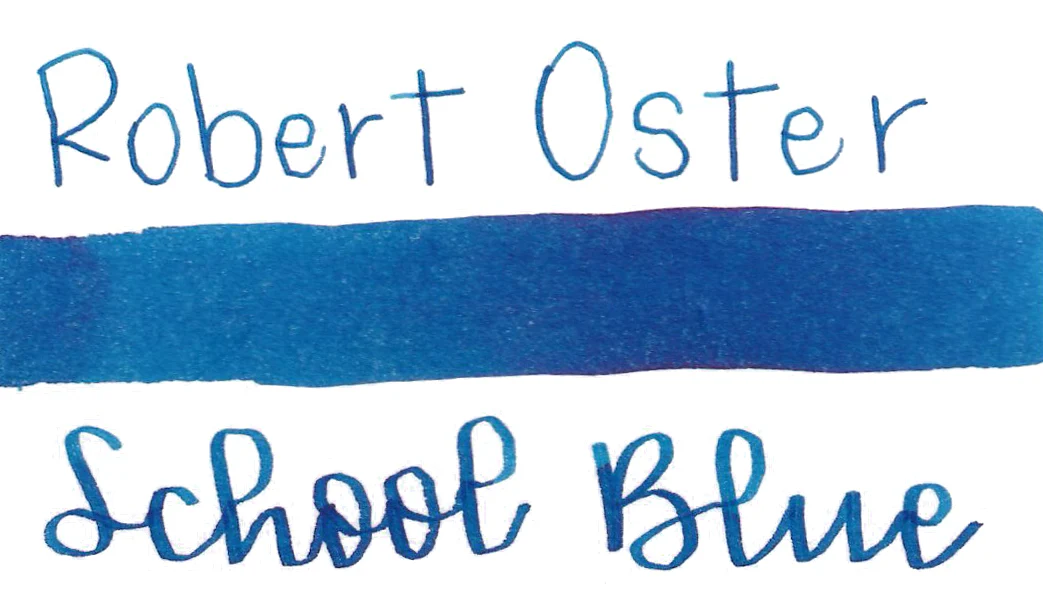 Robert Oster
School Blue